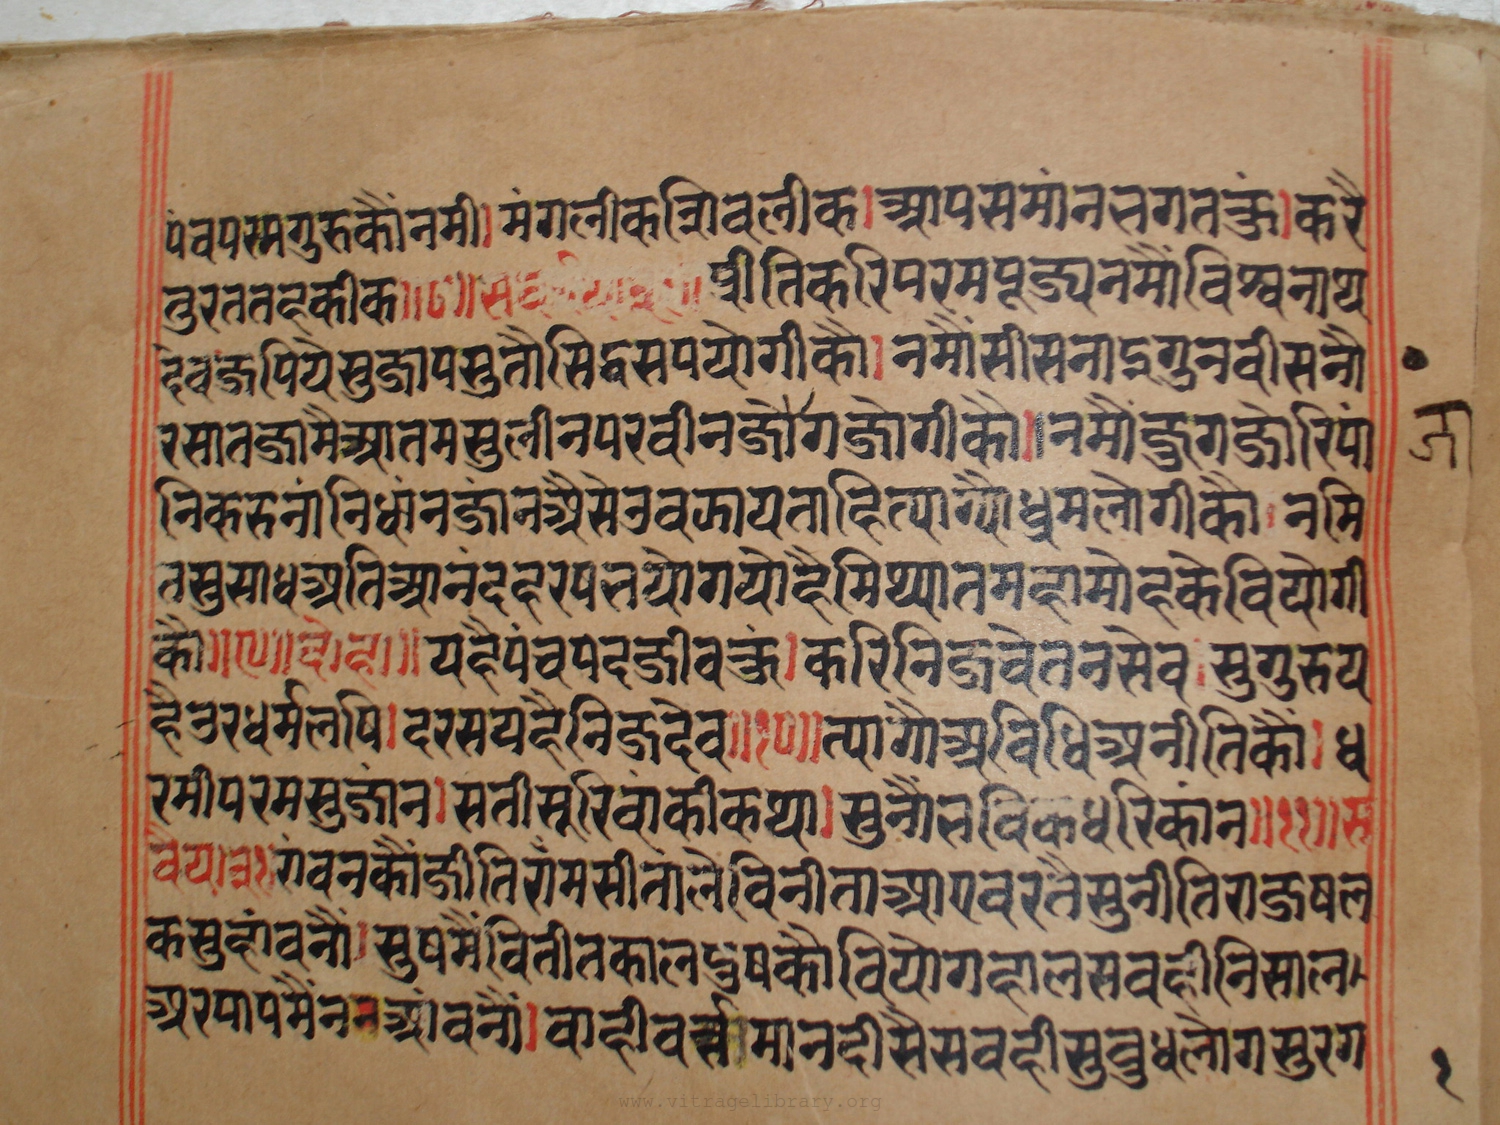 पंचपरमगुरुकौंनमी। मंगलीकत्रिविलीक। आपसमांनलगतकूं। करै
तुरततहकीक॥८॥ प्रीतिकरिपरमपूज्यनमौंविश्वनाथ
देवजपियैसुजापसुतौसिद्धसपयोगीकौ। नमौंसीसनाइगुनवीसनौ
रसातजामैआतमसुलीनपरवीनजोगजोगीकौ॥ नमौंजुगजोरिपां
निकरुनांनिधांनजांनऔसेउवकायताहित्याग्यौध्रमलोगीकौ। नमि
तसुसाधअतिआनंदहरषलयोगयोहैमिथ्यातमहामोहकेवियोगी
कौ॥९॥दोहा॥ यहैपंचपदजीवकूं। करिनिजचेतनसेव। सुगुरुय
हैउरधर्मलषि। दरसयहैनिजदेव॥१०॥ त्यागौअविधिअनीतिकौं। ध
रमीपरमसुजांन। सतीसूरिवांकीकथा। सुनौंलविकधरिकांन॥११॥स
वैया३१ रांवनकौंजीतिरांमसीतालैविनीताआएवरतैसुनीतिराजषल
कसुहांवनौं। सुषमैंवितीतकालपुषकौवियोगहालसवहीनिसाल
अरपापमैंनआंवनौं। वाहीवर्त्तमानदीसैसवहीसुवुधलोगसुरग
जा
१
www.vitragelibrary.org